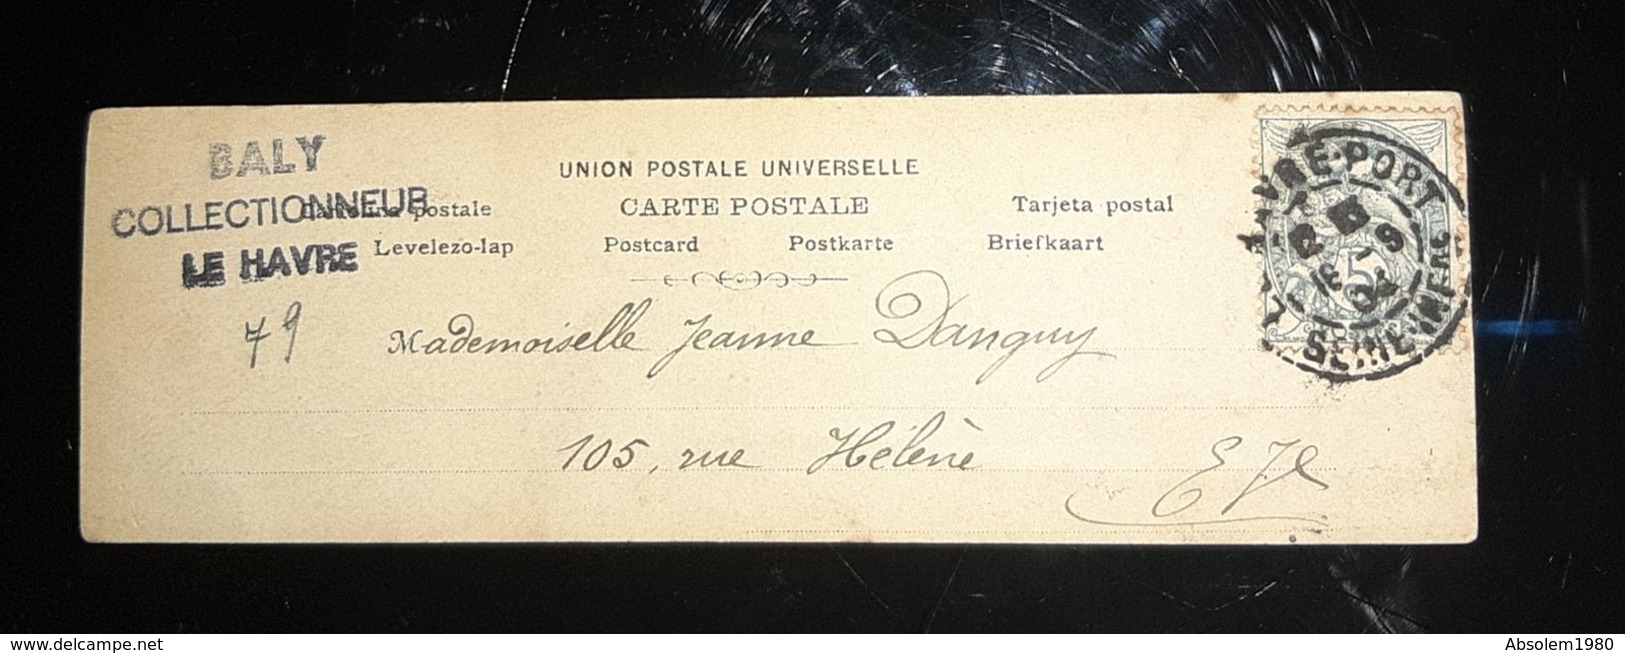 BALY
COLLECTIONNEUR
LE HAVRE
79
UNION POSTALE UNIVERSELLE
Cartolina postale CARTE POSTALE Tarjeta postal
Levelezo-lap Postcard Postkarte Briefkaart
Mademoiselle Jeanne Danguy
105, rue Hélène
E V
HAVRE-PORT
SEINE INFRE
5
www.delcampe.net
Absolem1980